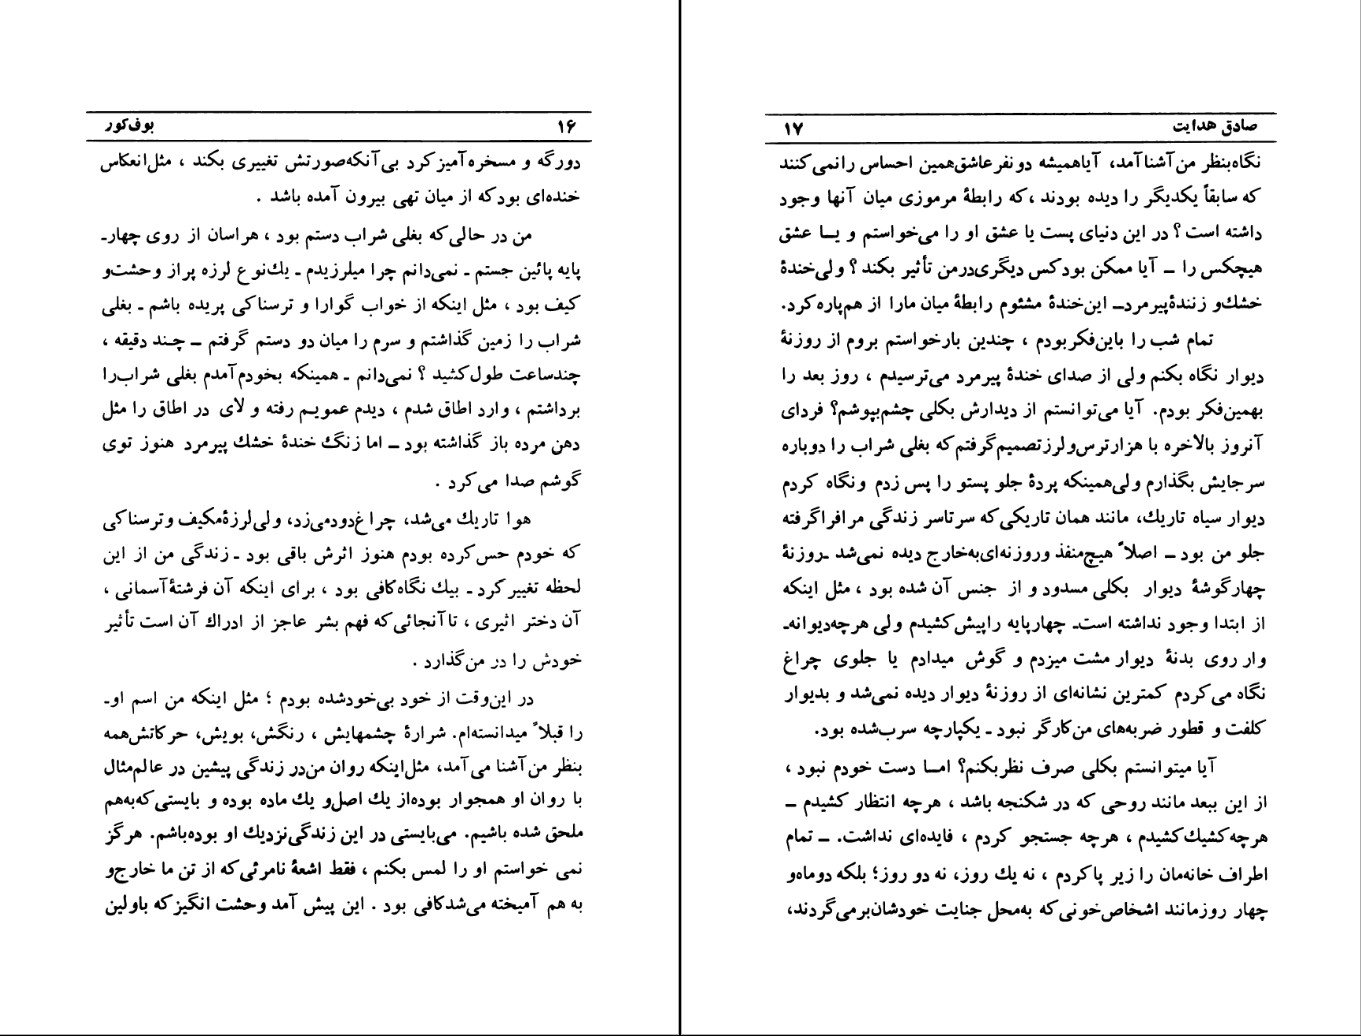 ۱۶ بوف‌کور
دورگه و مسخره‌آمیز کرد بی‌آنکه‌صورتش تغییری بکند ، مثل‌انعکاس
خنده‌ای بود که از میان تهی بیرون آمده باشد .
من در حالی‌که بغلی شراب دستم بود ، هراسان از روی چهار-
پایه پائین جستم ـ نمی‌دانم چرا میلرزیدم ـ یك‌نوع لرزه پراز وحشت‌و
کیف بود ، مثل اینکه از خواب گوارا و ترسناکی پریده باشم ـ بغلی
شراب را زمین گذاشتم و سرم را میان دو دستم گرفتم ــ چـند دقیقه ،
چندساعت طول‌کشید ؟ نمی‌دانم ـ همینکه بخودم‌آمدم بغلی شراب‌را
برداشتم ، وارد اطاق شدم ، دیدم عمویـم رفته و لای در اطاق را مثل
دهن مرده باز گذاشته بود ــ اما زنگ خندهٔ خشك پیرمرد هنوز توی
گوشم صدا می‌کرد .
هوا تاریك می‌شد، چراغ‌دودمی‌زد، ولی‌لرزهٔ‌مکیف‌وترسناکی
که خودم حس‌کرده بودم هنوز اثرش باقی بود ـ زندگی من از این
لحظه تغییر کرد ـ بیك نگاه‌کافی بود ، برای اینکه آن فرشتهٔ‌آسمانی ،
آن دختر اثیری ، تاآنجائی‌که فهم بشر عاجز از ادراك آن است تأثیر
خودش را در من‌گذارد .
در این‌وقت از خود بی‌خودشده بودم ؛ مثل اینکه من اسم او-
را قبلاً میدانسته‌ام. شرارهٔ چشمهایش ، رنگش، بویش، حرکاتش‌همه
بنظر من‌آشنا می‌آمد، مثل‌اینکه روان من‌در زندگی پیشین در عالم‌مثال
با روان او همجوار بوده‌از یك اصل‌و یك ماده بوده و بایستی‌که‌به‌هم
ملحق شده باشیم. می‌بایستی در این زندگی‌نزدیك او بوده‌باشم. هرگز
نمی خواستم او را لمس بکنم ، فقط اشعهٔ نامرئی‌که از تن ما خارج‌و
به هم آمیخته می‌شدکافی بود . این پیش آمد وحشت انگیز که باولین
صادق هدایت ۱۷
نگاه‌بنظر من‌آشناآمد، آیاهمیشه دونفرعاشق‌همین احساس رانمی‌کنند
که سابقاً یکدیگر را دیده بودند ،که رابطهٔ مرموزی میان آنها وجود
داشته است ؟ در این دنیای پست یا عشق او را می‌خواستم و یـا عشق
هیچکس را ــ آیا ممکن بودکس دیگری‌درمن تأثیر بکند ؟ ولی‌خندهٔ
خشك‌و زنندهٔ‌پیرمردــ این‌خندهٔ مشئوم رابطهٔ میان مارا از هم‌پاره‌کرد.
تمام شب را باین‌فکربودم ، چندین بارخواستم بروم از روزنهٔ
دیوار نگاه بکنم ولی از صدای خندهٔ پیرمرد می‌ترسیدم ، روز بعد را
بهمین‌فکر بودم. آیا می‌توانستم از دیدارش بکلی چشم‌بپوشم؟ فردای
آنروز بالاخره با هزارترس‌ولرزتصمیم‌گرفتم‌که بغلی شراب را دوباره
سرجایش بگذارم ولی‌همینکه پردهٔ جلو پستو را پس زدم ونگاه کردم
دیوار سیاه تاریك، مانند همان تاریکی‌که سرتاسر زندگی مرافراگرفته
جلو من بود ــ اصلاً هیچ‌منفذ وروزنه‌ای‌به‌خارج دیده نمی‌شد ـروزنهٔ
چهارگوشهٔ دیوار بکلی مسدود و از جنس آن شده بود ، مثل اینکه
از ابتدا وجود نداشته است‌ـ چهارپایه راپیش‌کشیدم ولی هرچه‌دیوانه‌ـ
وار روی بدنهٔ دیوار مشت میزدم و گوش میدادم یا جلوی چراغ
نگاه می‌کردم کمترین نشانه‌ای از روزنهٔ دیوار دیده نمی‌شد و بدیوار
کلفت و قطور ضربه‌های من‌کارگر نبود ـ یکپارچه سرب‌شده بود.
آیا میتوانستم بکلی صرف نظربکنم؟ امـا دست خودم نبود ،
از این ببعد مانند روحی که در شکنجه باشد ، هرچه انتظار کشیدم ــ
هرچه‌کشیك‌کشیدم ، هرچه جستجو کردم ، فایده‌ای نداشت. ــ تمام
اطراف خانه‌مان را زیر پاکردم ، نه یك روز، نه دو روز؛ بلکه دوماه‌و
چهار روزمانند اشخاص‌خونی‌که به‌محل جنایت خودشان‌برمی‌گردند،